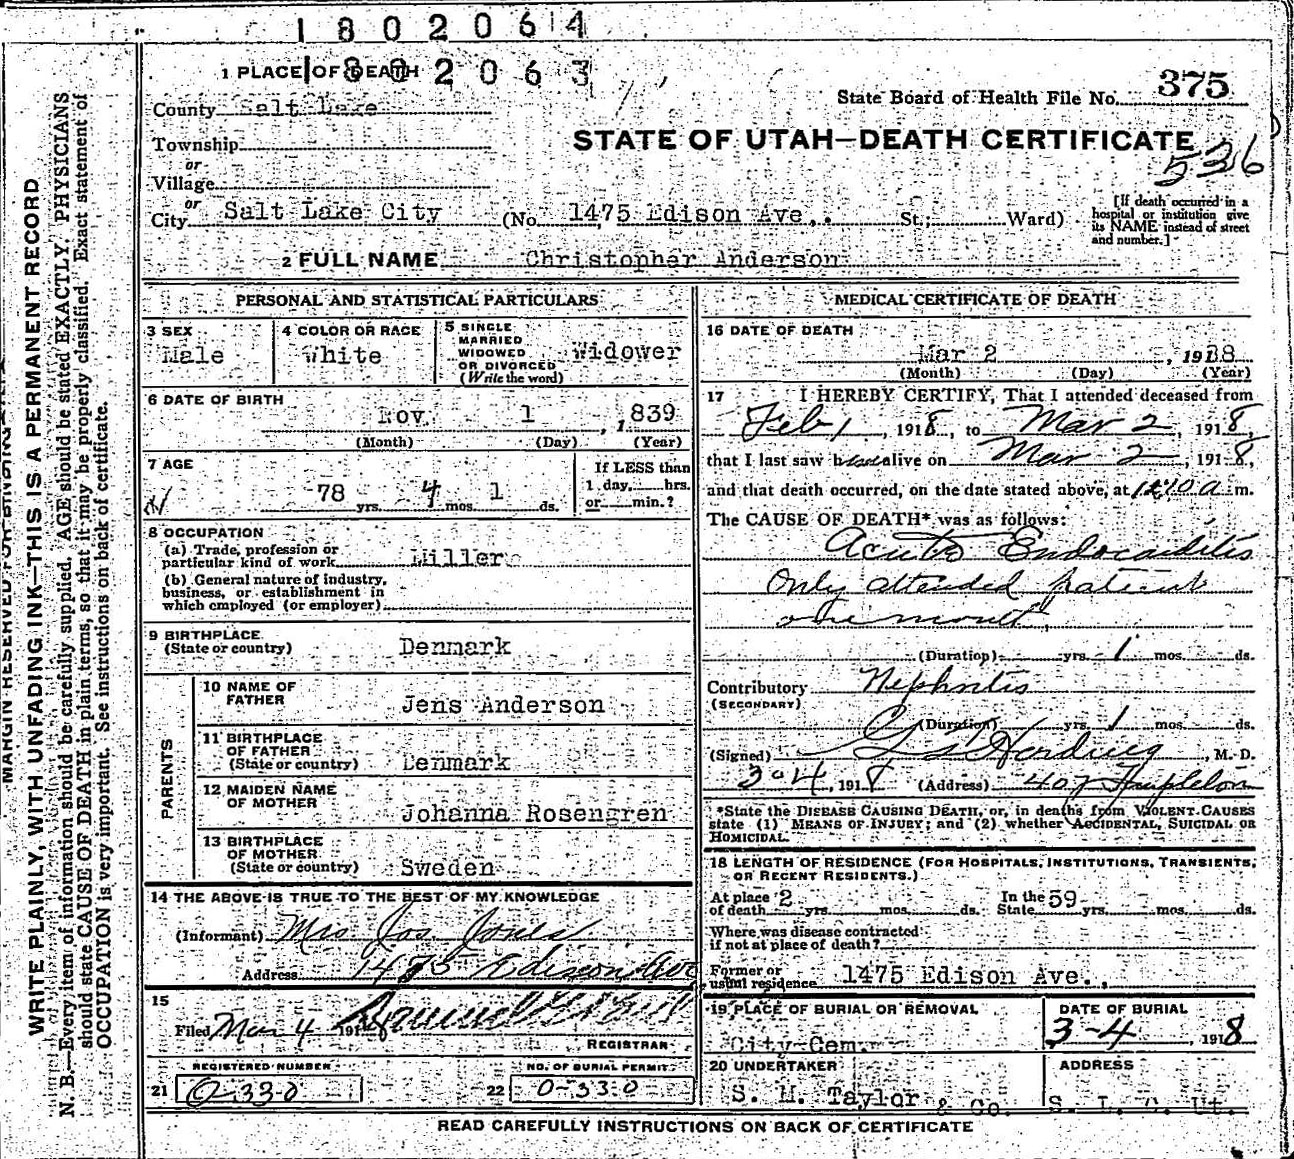 1802064
1802063
1 PLACE OF DEATH
State Board of Health File No. 375
County Salt Lake
STATE OF UTAH—DEATH CERTIFICATE
536
Township
or
Village
or
City Salt Lake City (No. 1475 Edison Ave., St; Ward)
[If death occurred in a hospital or institution give its NAME instead of street and number.]
2 FULL NAME Christopher Anderson
PERSONAL AND STATISTICAL PARTICULARS
3 SEX
Male
4 COLOR OR RACE
White
5 SINGLE
MARRIED
WIDOWED
OR DIVORCED
(Write the word)
Widower
6 DATE OF BIRTH
Nov. 1, 1839
(Month) (Day) (Year)
7 AGE
78 yrs. 4 mos. 1 ds.
If LESS than
1 day, hrs.
or min.?
8 OCCUPATION
(a) Trade, profession or
particular kind of work Miller
(b) General nature of industry,
business, or establishment in
which employed (or employer)
9 BIRTHPLACE
(State or country) Denmark
PARENTS
10 NAME OF
FATHER Jens Anderson
11 BIRTHPLACE
OF FATHER
(State or country) Denmark
12 MAIDEN NAME
OF MOTHER Johanna Rosengren
13 BIRTHPLACE
OF MOTHER
(State or country) Sweden
14 THE ABOVE IS TRUE TO THE BEST OF MY KNOWLEDGE
(Informant) Mrs Jos. Jones
Address 1475 Edison Ave
15
Filed Mar 4 191
REGISTRAR
REGISTERED NUMBER
21 0-330
NO. OF BURIAL PERMIT
22 0-330
MEDICAL CERTIFICATE OF DEATH
16 DATE OF DEATH
Mar 2, 1918
(Month) (Day) (Year)
17 I HEREBY CERTIFY, That I attended deceased from
Feb 1, 1918, to Mar 2, 1918,
that I last saw alive on Mar 2, 1918,
and that death occurred, on the date stated above, at a m.
The CAUSE OF DEATH* was as follows:
Acute Endocarditis
Only attended patient
one month,
(Duration) yrs. 1 mos. ds.
Contributory Nephritis
(SECONDARY)
(Duration) yrs. 1 mos. ds.
(Signed) M. D.
3-4, 1918 (Address) 407 Templeton
*State the DISEASE CAUSING DEATH, or, in deaths from VIOLENT CAUSES
state (1) MEANS OF INJURY; and (2) whether ACCIDENTAL, SUICIDAL OR
HOMICIDAL.
18 LENGTH OF RESIDENCE (FOR HOSPITALS, INSTITUTIONS, TRANSIENTS,
OR RECENT RESIDENTS.)
At place of death 2 yrs. mos. ds. In the State 59 yrs. mos. ds.
Where was disease contracted
if not at place of death?
Former or
usual residence 1475 Edison Ave.,
19 PLACE OF BURIAL OR REMOVAL
City Cem.
DATE OF BURIAL
3-4, 1918
20 UNDERTAKER
S. M. Taylor & Co.
ADDRESS
S. L. C. Ut.
READ CAREFULLY INSTRUCTIONS ON BACK OF CERTIFICATE
MARGIN RESERVED FOR BINDING
WRITE PLAINLY, WITH UNFADING INK—THIS IS A PERMANENT RECORD
N. B.—Every item of information should be carefully supplied. AGE should be stated EXACTLY. PHYSICIANS
should state CAUSE OF DEATH in plain terms, so that it may be properly classified. Exact statement of
OCCUPATION is very important. See instructions on back of certificate.